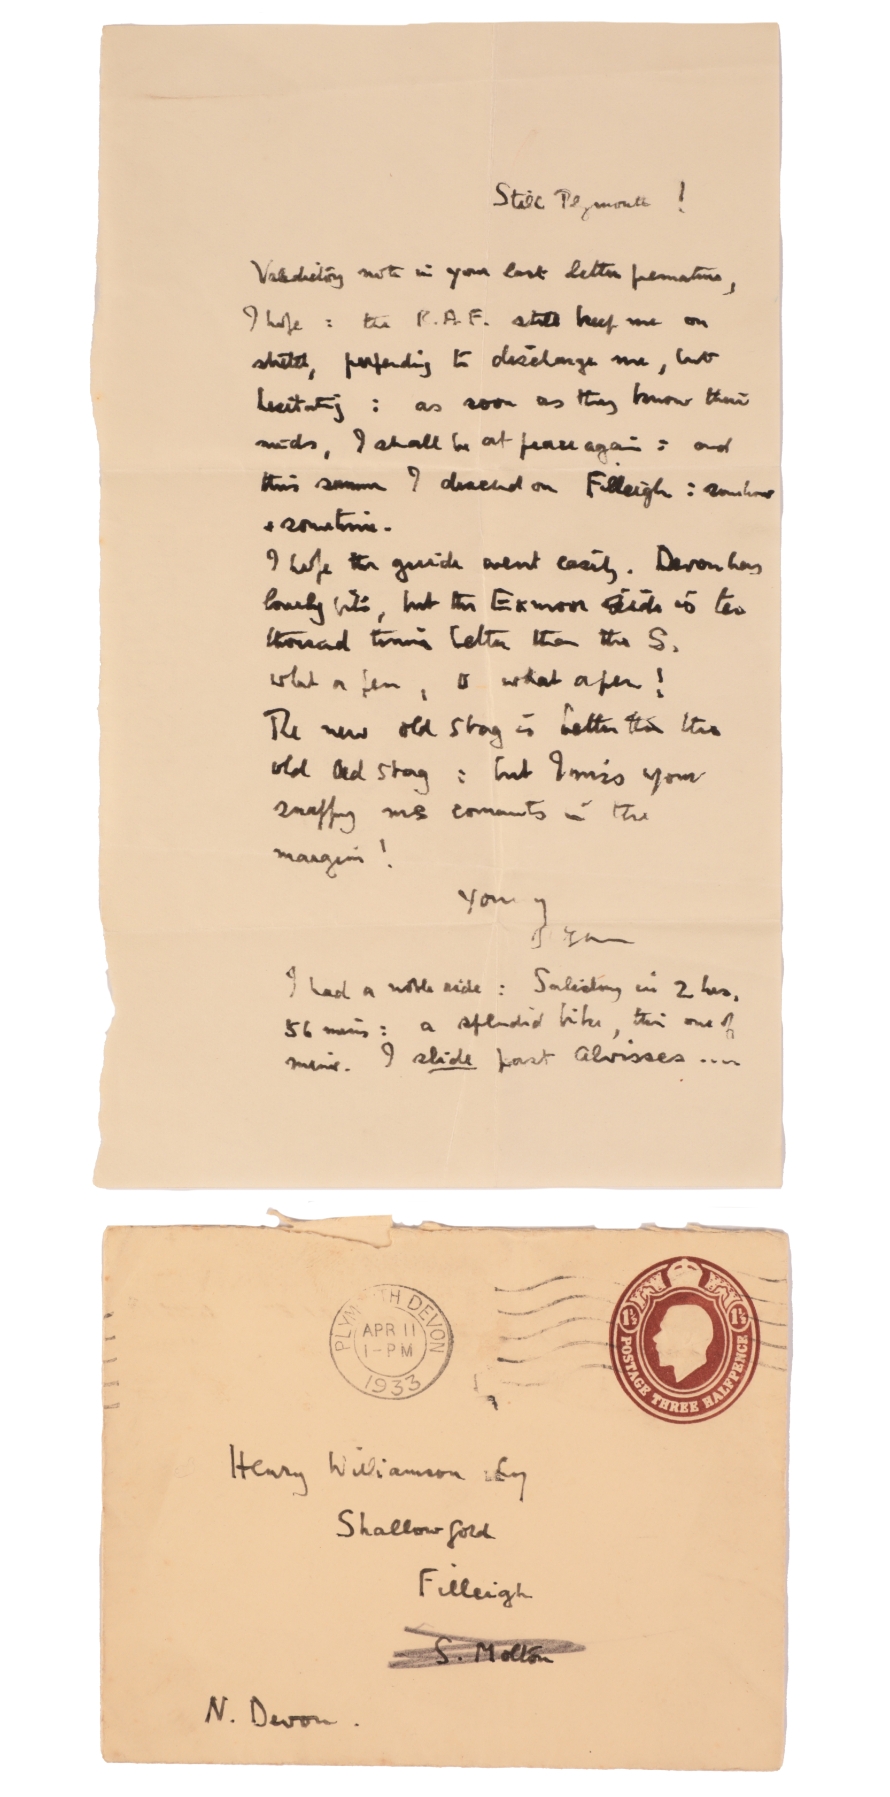 Still Plymouth!
Valedictory note in your last letter premature,
I hope: the R.A.F. still keep me on
stretch, purporting to discharge me, but
hesitating: as soon as they know their
minds, I shall be at peace again: and
this summer I descend on Filleigh: somehow
+ sometime.
I hope the guide went easily. Devon has
lovely bits, but the Exmoor side is ten
thousand times better than the S.
what a pen, o what a pen!
The new old Stag is better than the
old Old Stag: but I miss your
snappy ms comments in the
margin!
Yours
I had a noble ride: Salisbury in 2 hrs.
56 mins: a splendid bike, this one of
mine. I slide past Alvisses ....
PLYMOUTH DEVON
APR 11
1-PM
1933
1½ 1½
POSTAGE THREE HALFPENCE
Henry Williamson Esq
Shallowford
Filleigh
S. Molton
N. Devon.